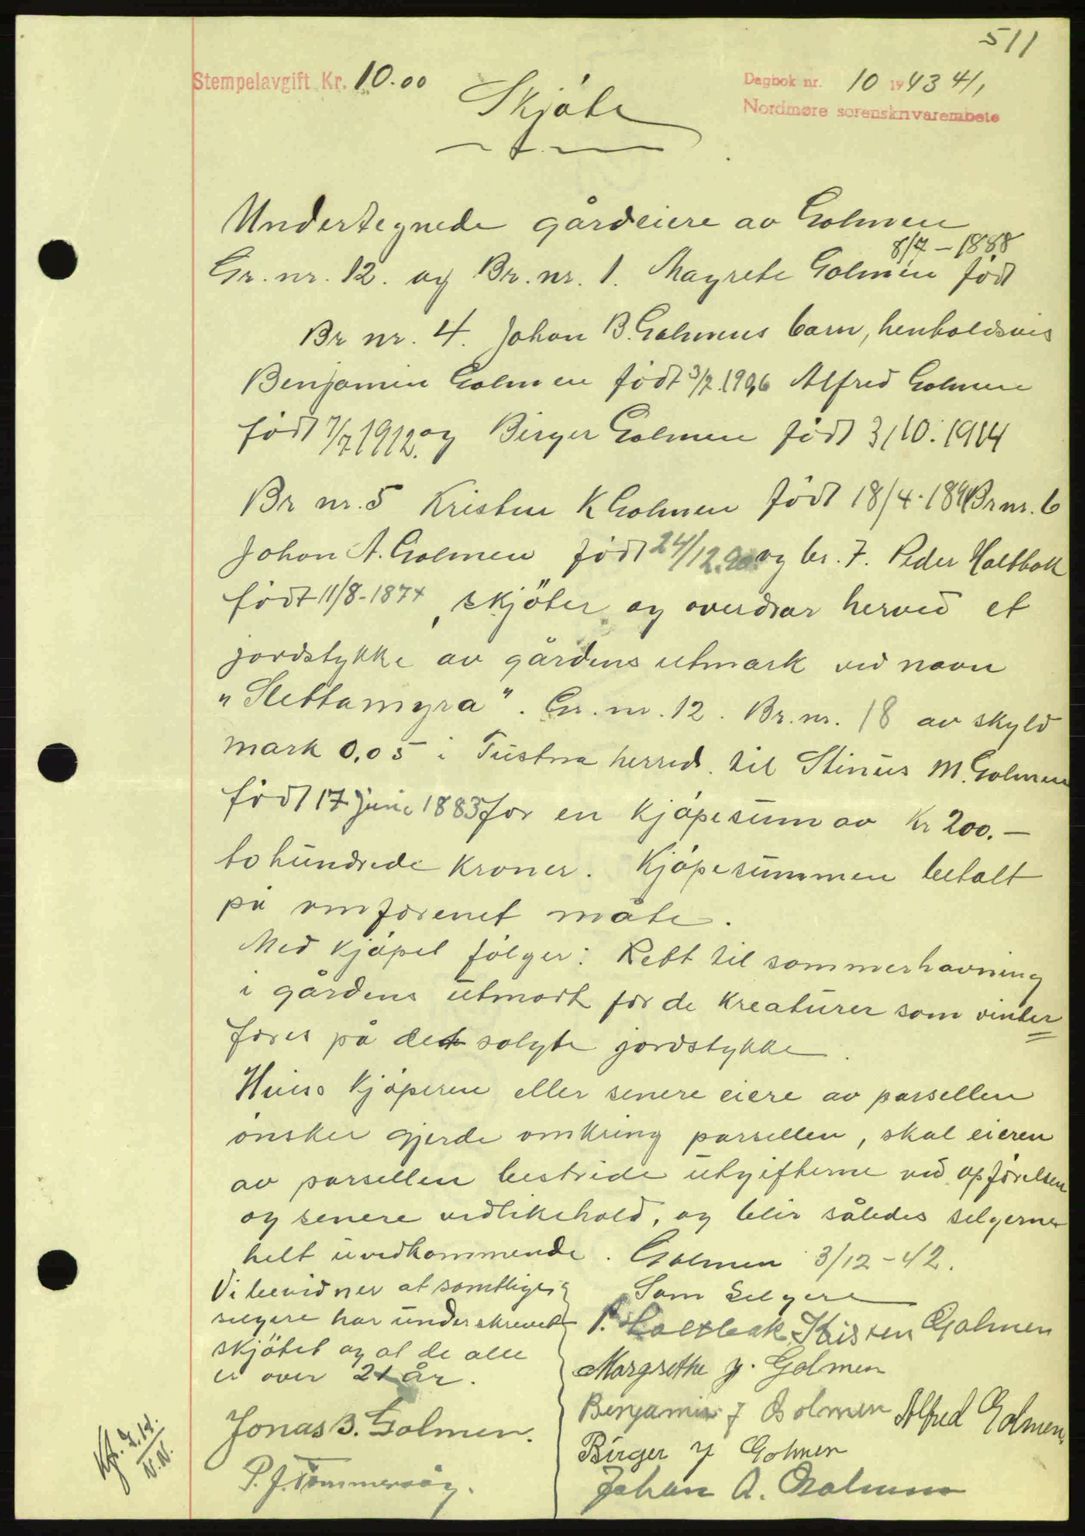 511
Stempelavgift Kr. 10.00
Dagbok nr. 10 1943 4/1
Nordmøre sorenskrivarembete
Skjøte
Undertegnede gårdeiere av Golmen
8/7 - 1888
Gr. nr. 12. og Br. nr. 1. Magrete Golmen født
Br nr. 4. Johan B. Golmens barn, henholdsvis
Benjamin Golmen født 3/2 1906 Alfred Golmen
født 7/7 1912. og Birger Golmen født 3/10. 1914
Br nr. 5 Kristen K Golmen født 18/4- Br nr. 6
Johan A. Golmen født 24/12. og br. 7. Peder Holtbak
født 11/8-1874, skjøter og overdrar herved et
jordstykke av gårdens utmark ved navn
"Slettamyra". Gr. nr. 12. Br. nr. 18 av skyld
mark 0,05 i Tustna herred. til Stinus M. Golmen
født 17 juni 1883 for en kjøpesum av Kr 200.-
to hundrede kroner. Kjøpesummen betalt
på omforenet måte.
Med kjøpet følger: Rett til sommerhavning
i gårdens utmark for de kreaturer som vinter
fores på det solgte jordstykke.
Hvis kjøperen eller senere eiere av parsellen
ønsker gjerde omkring parsellen, skal eieren
av parsellen bestride utgifterne ved opførelsen
og senere vedlikehold, og blir således selgerne
helt uvedkommende. Golmen 3/12-42.
Vi bevidner at samtlige
selgere har underskrevet
skjøtet og at de alle
er over 21 år.
Jonas B. Golmen.
P. J. Tømmervåg.
Som Selgere
P. Holtbak, Kristen Golmen
Margrethe J. Golmen
Benjamin J Golmen Alfred Golmen
Birger J Golmen
Johan A. Golmen
N.N.